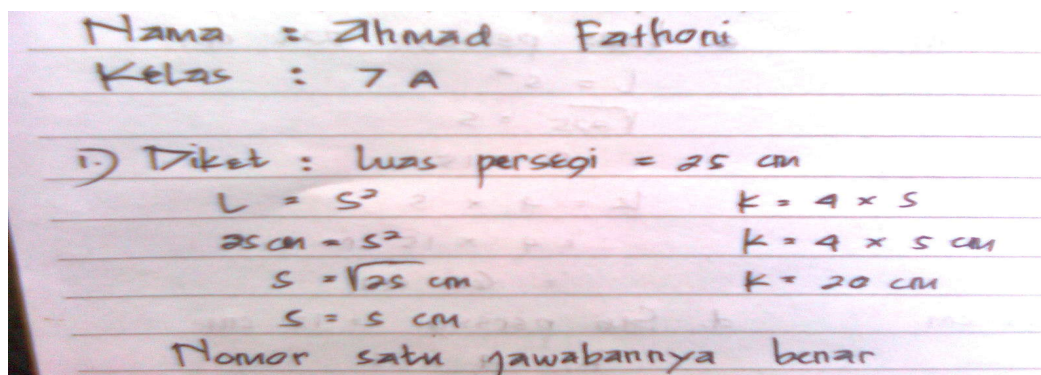 Nama : Ahmad Fathoni
Kelas : 7 A
1.) Diket : luas persegi = 25 cm
L = S² K = 4 × S
25 cm = S² K = 4 × 5 cm
S = √25 cm K = 20 cm
S = 5 cm
Nomor satu jawabannya benar